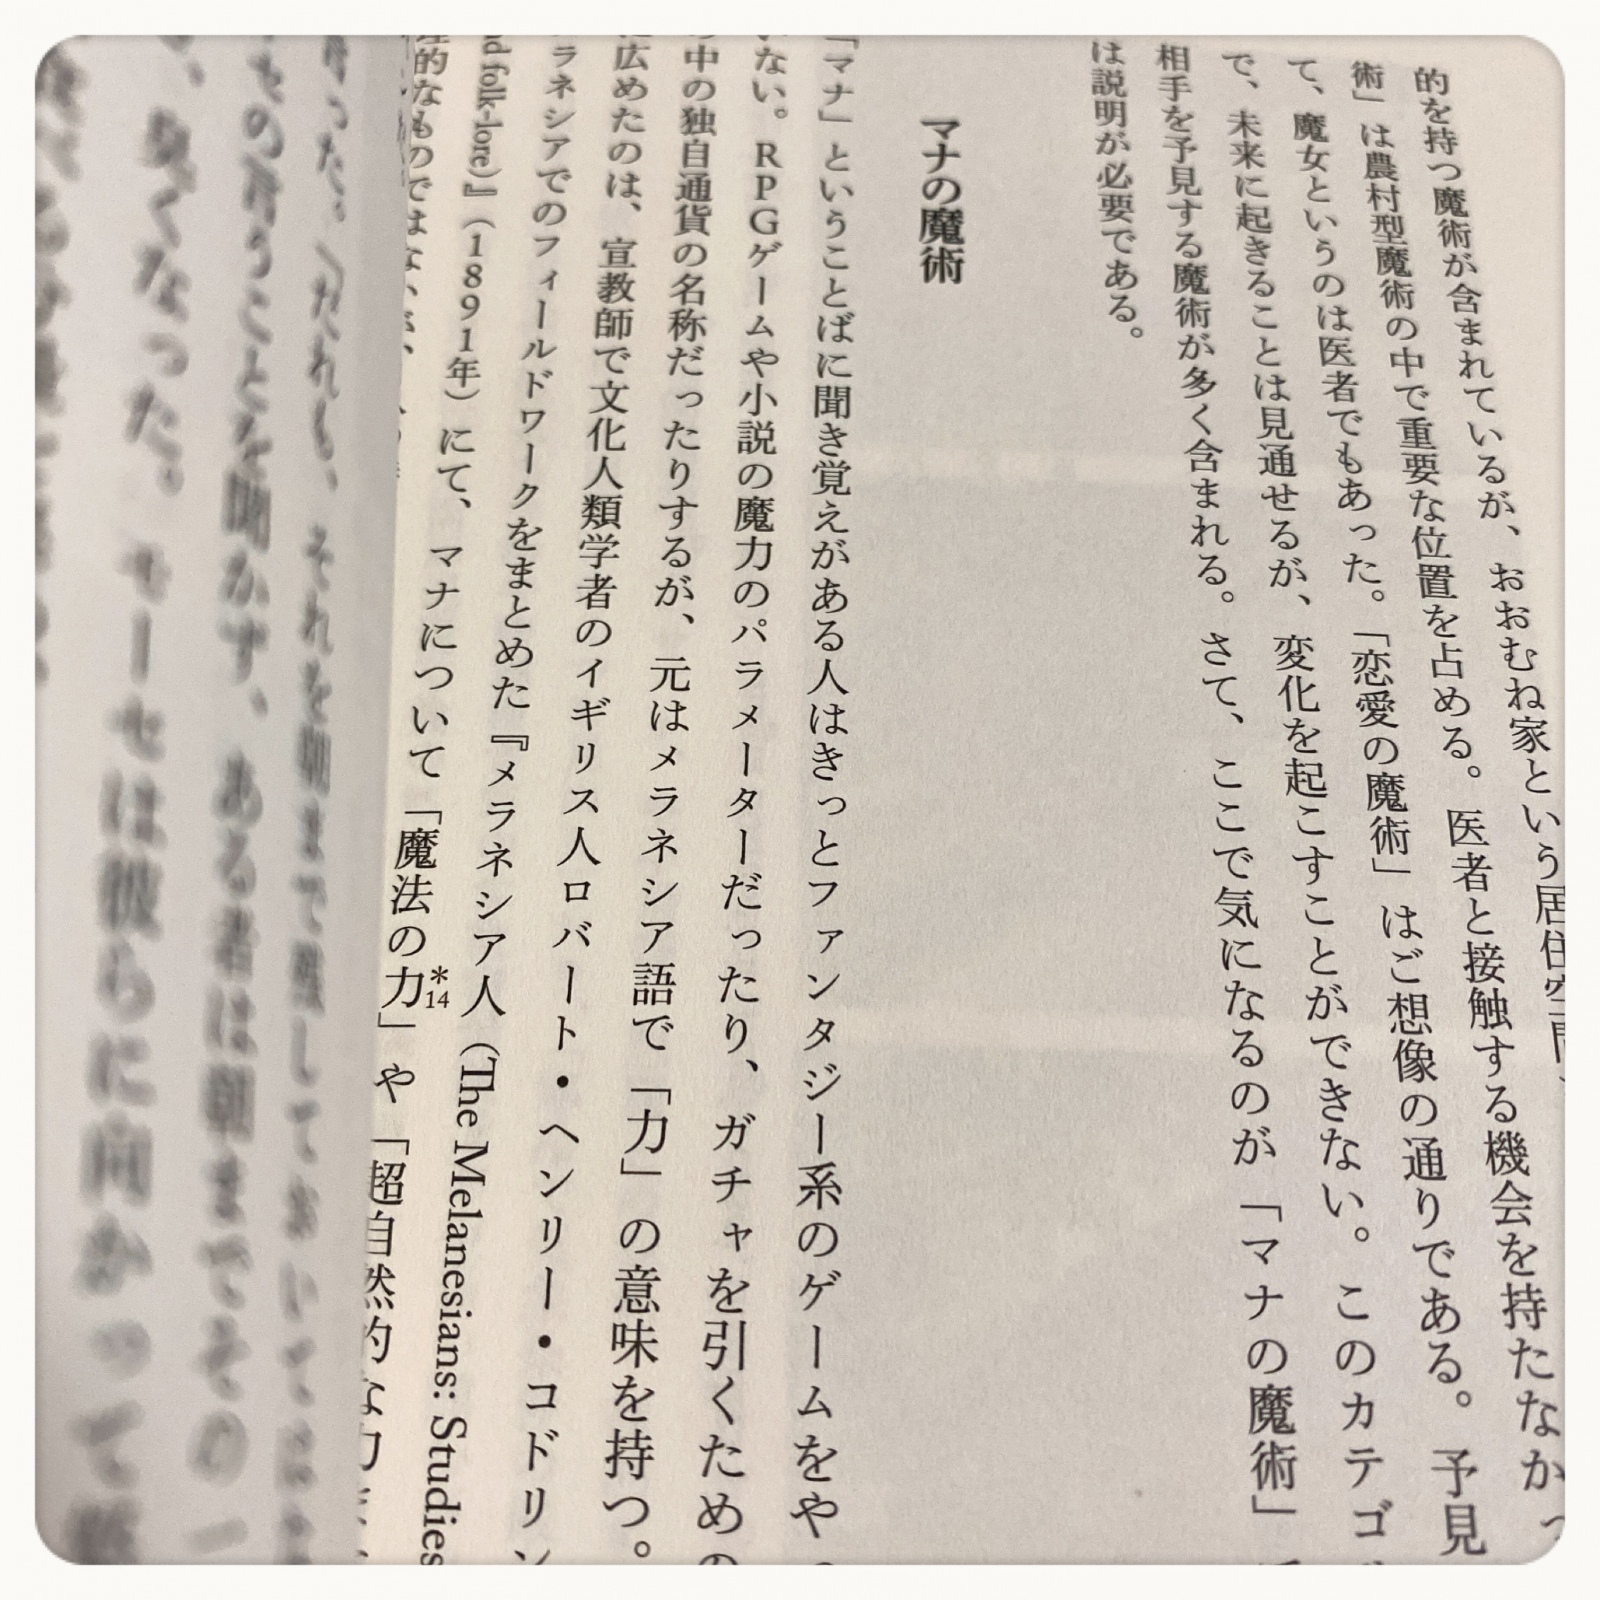 的を持つ魔術が含まれているが、おおむね家という居住空間、
術」は農村型魔術の中で重要な位置を占める。医者と接触する機会を持たなかっ
て、魔女というのは医者でもあった。「恋愛の魔術」はご想像の通りである。予見
で、未来に起きることは見通せるが、変化を起こすことができない。このカテゴ
相手を予見する魔術が多く含まれる。さて、ここで気になるのが「マナの魔術」
は説明が必要である。
マナの魔術
「マナ」ということばに聞き覚えがある人はきっとファンタジー系のゲームをや
いない。RPGゲームや小説の魔力のパラメーターだったり、ガチャを引くための
の中の独自通貨の名称だったりするが、元はメラネシア語で「力」の意味を持つ。
に広めたのは、宣教師で文化人類学者のイギリス人ロバート・ヘンリー・コドリン
ラネシアでのフィールドワークをまとめた『メラネシア人（The Melanesians: Studies
nd folk-lore）』（1891年）にて、マナについて「魔法の力*14」や「超自然的な力
理的なものではな
行った。それを朝まで残しておいては
言うことを聞かず、ある者は朝までその一
臭くなった。モーセは彼らに向かって